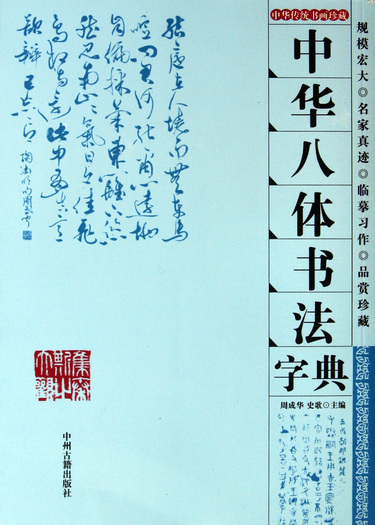 中华传统书画珍藏
规模宏大◎名家真迹◎临摹习作◎品赏珍藏
中华八体书法
字典
周成华 史歌○主编
結廬在人境而無車馬
喧問君何能爾心遠地
自偏採菊東籬下悠
然見南山山氣日夕佳飛
鳥相與還此中有真意
欲辯已忘言
中州古籍出版社